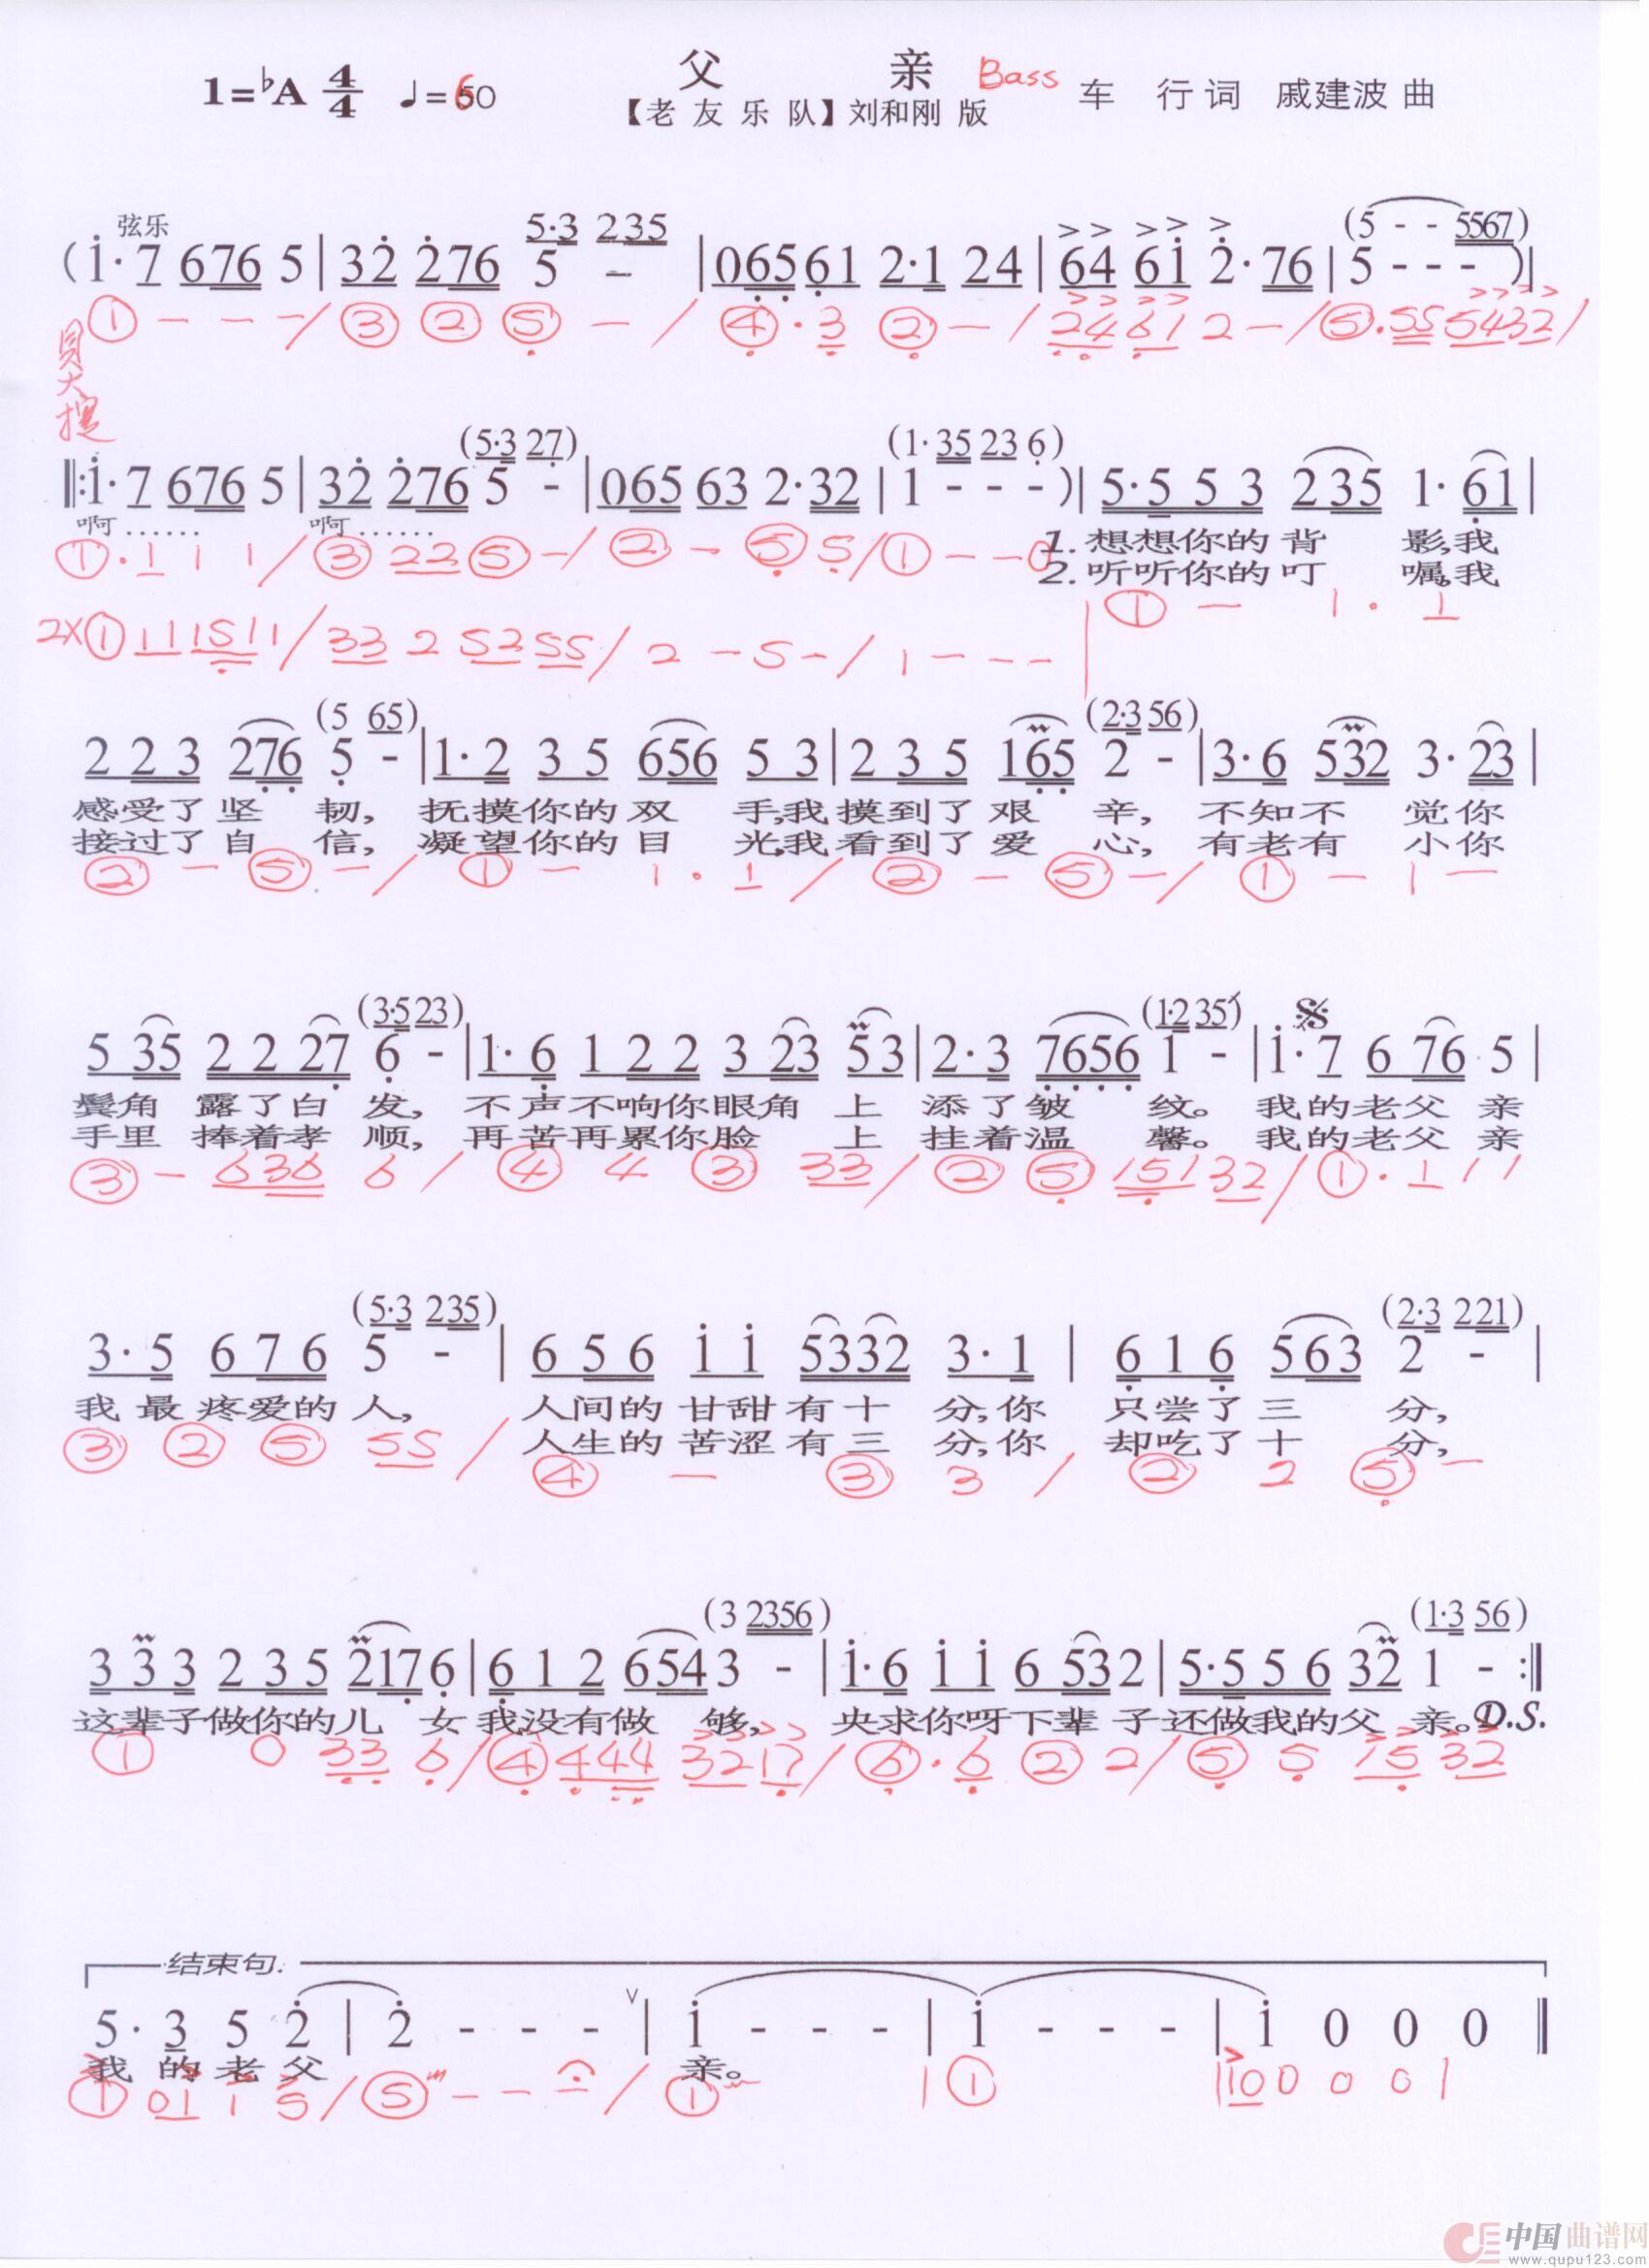 父 亲 Bass
1=♭A 4/4 ♩=60
车 行 词 戚建波 曲
【老 友 乐 队】刘和刚 版
弦乐
5·3 235 (5 - - 5567)
(i·7 676 5 | 32 276 5 - | 0656 1 2·1 24 | 64 61 2·76 | 5 - - - )|
① - - - / ③ ② ⑤ - / ④·3 ② - / 2461 2 - / ⑤.55 5432 /
(5·3 27) (1· 35 23 6)
‖:i·7 676 5 | 32 276 5 - | 065 63 2·32 | 1 - - - )| 5·5 5 3 235 1· 61 |
啊…… 啊……
①·1 1 1 / ③ 22 ⑤ - / ② - ⑤ 5 / ① - - 0
1.想想你的背 影,我
2.听听你的叮 嘱,我
① - 1· 1
2X ① 111511 / 33 2 5255 / 2 - 5 - / 1 - - -
(5 65) (2·3 56)
2 2 3 276 5 - | 1·2 3 5 656 5 3 | 2 3 5 165 2 - | 3·6 532 3·23 |
感受了坚 韧, 抚摸你的双 手,我摸到了艰 辛, 不知不 觉你
接过了自 信, 凝望你的目 光,我看到了爱 心, 有老有 小你
② - ⑤ - / ① - 1· 1 / ② - ⑤ - / ① - 1 -
(3·5 23) (1·2 35)
5 35 2 2 27 6 - | 1·6 1 2 2 3 23 53 | 2·3 7656 1 - | i·7 6 76 5 |
鬓角 露了白 发, 不声不响你眼角 上 添了皱 纹。 我的老父 亲
手里 捧着孝 顺, 再苦再累你脸 上 挂着温 馨。 我的老父 亲
③ - 636 6 / ④ 4 ③ 33 / ② ⑤ 15132 / ①·1 1 1
(5·3 235) (2·3 221)
3·5 6 7 6 5 - | 6 5 6 i i 5332 3·1 | 6 1 6 563 2 - |
我最疼爱的人, 人间的甘甜有十 分,你 只尝了三 分,
人生的苦涩有三 分,你 却吃了十 分,
③ ② ⑤ 55 / ④ - ③ 3 / ② 2 ⑤ -
(3 2356) (1·3 56)
3 3 3 2 3 5 2176 | 6 1 2 6543 - | i·6 i i 6 532 | 5·5 5 6 32 1 - :‖
这辈子做你的儿 女我没有做 够, 央求你呀下辈 子还做我的父 亲。D.S.
① 0 33 6 / ④ 444 3217 / ⑥·6 ② 2 / ⑤ 5 15 32
结束句.
5·3 5 2 | 2 - - - ∨ | i - - - | i - - - | i 0 0 0 ‖
我的老父 亲。
① 01 1 5 / ⑤ - - - / ① | ① | 10 0 0 0 |
中国曲谱网
www.qupu123.com